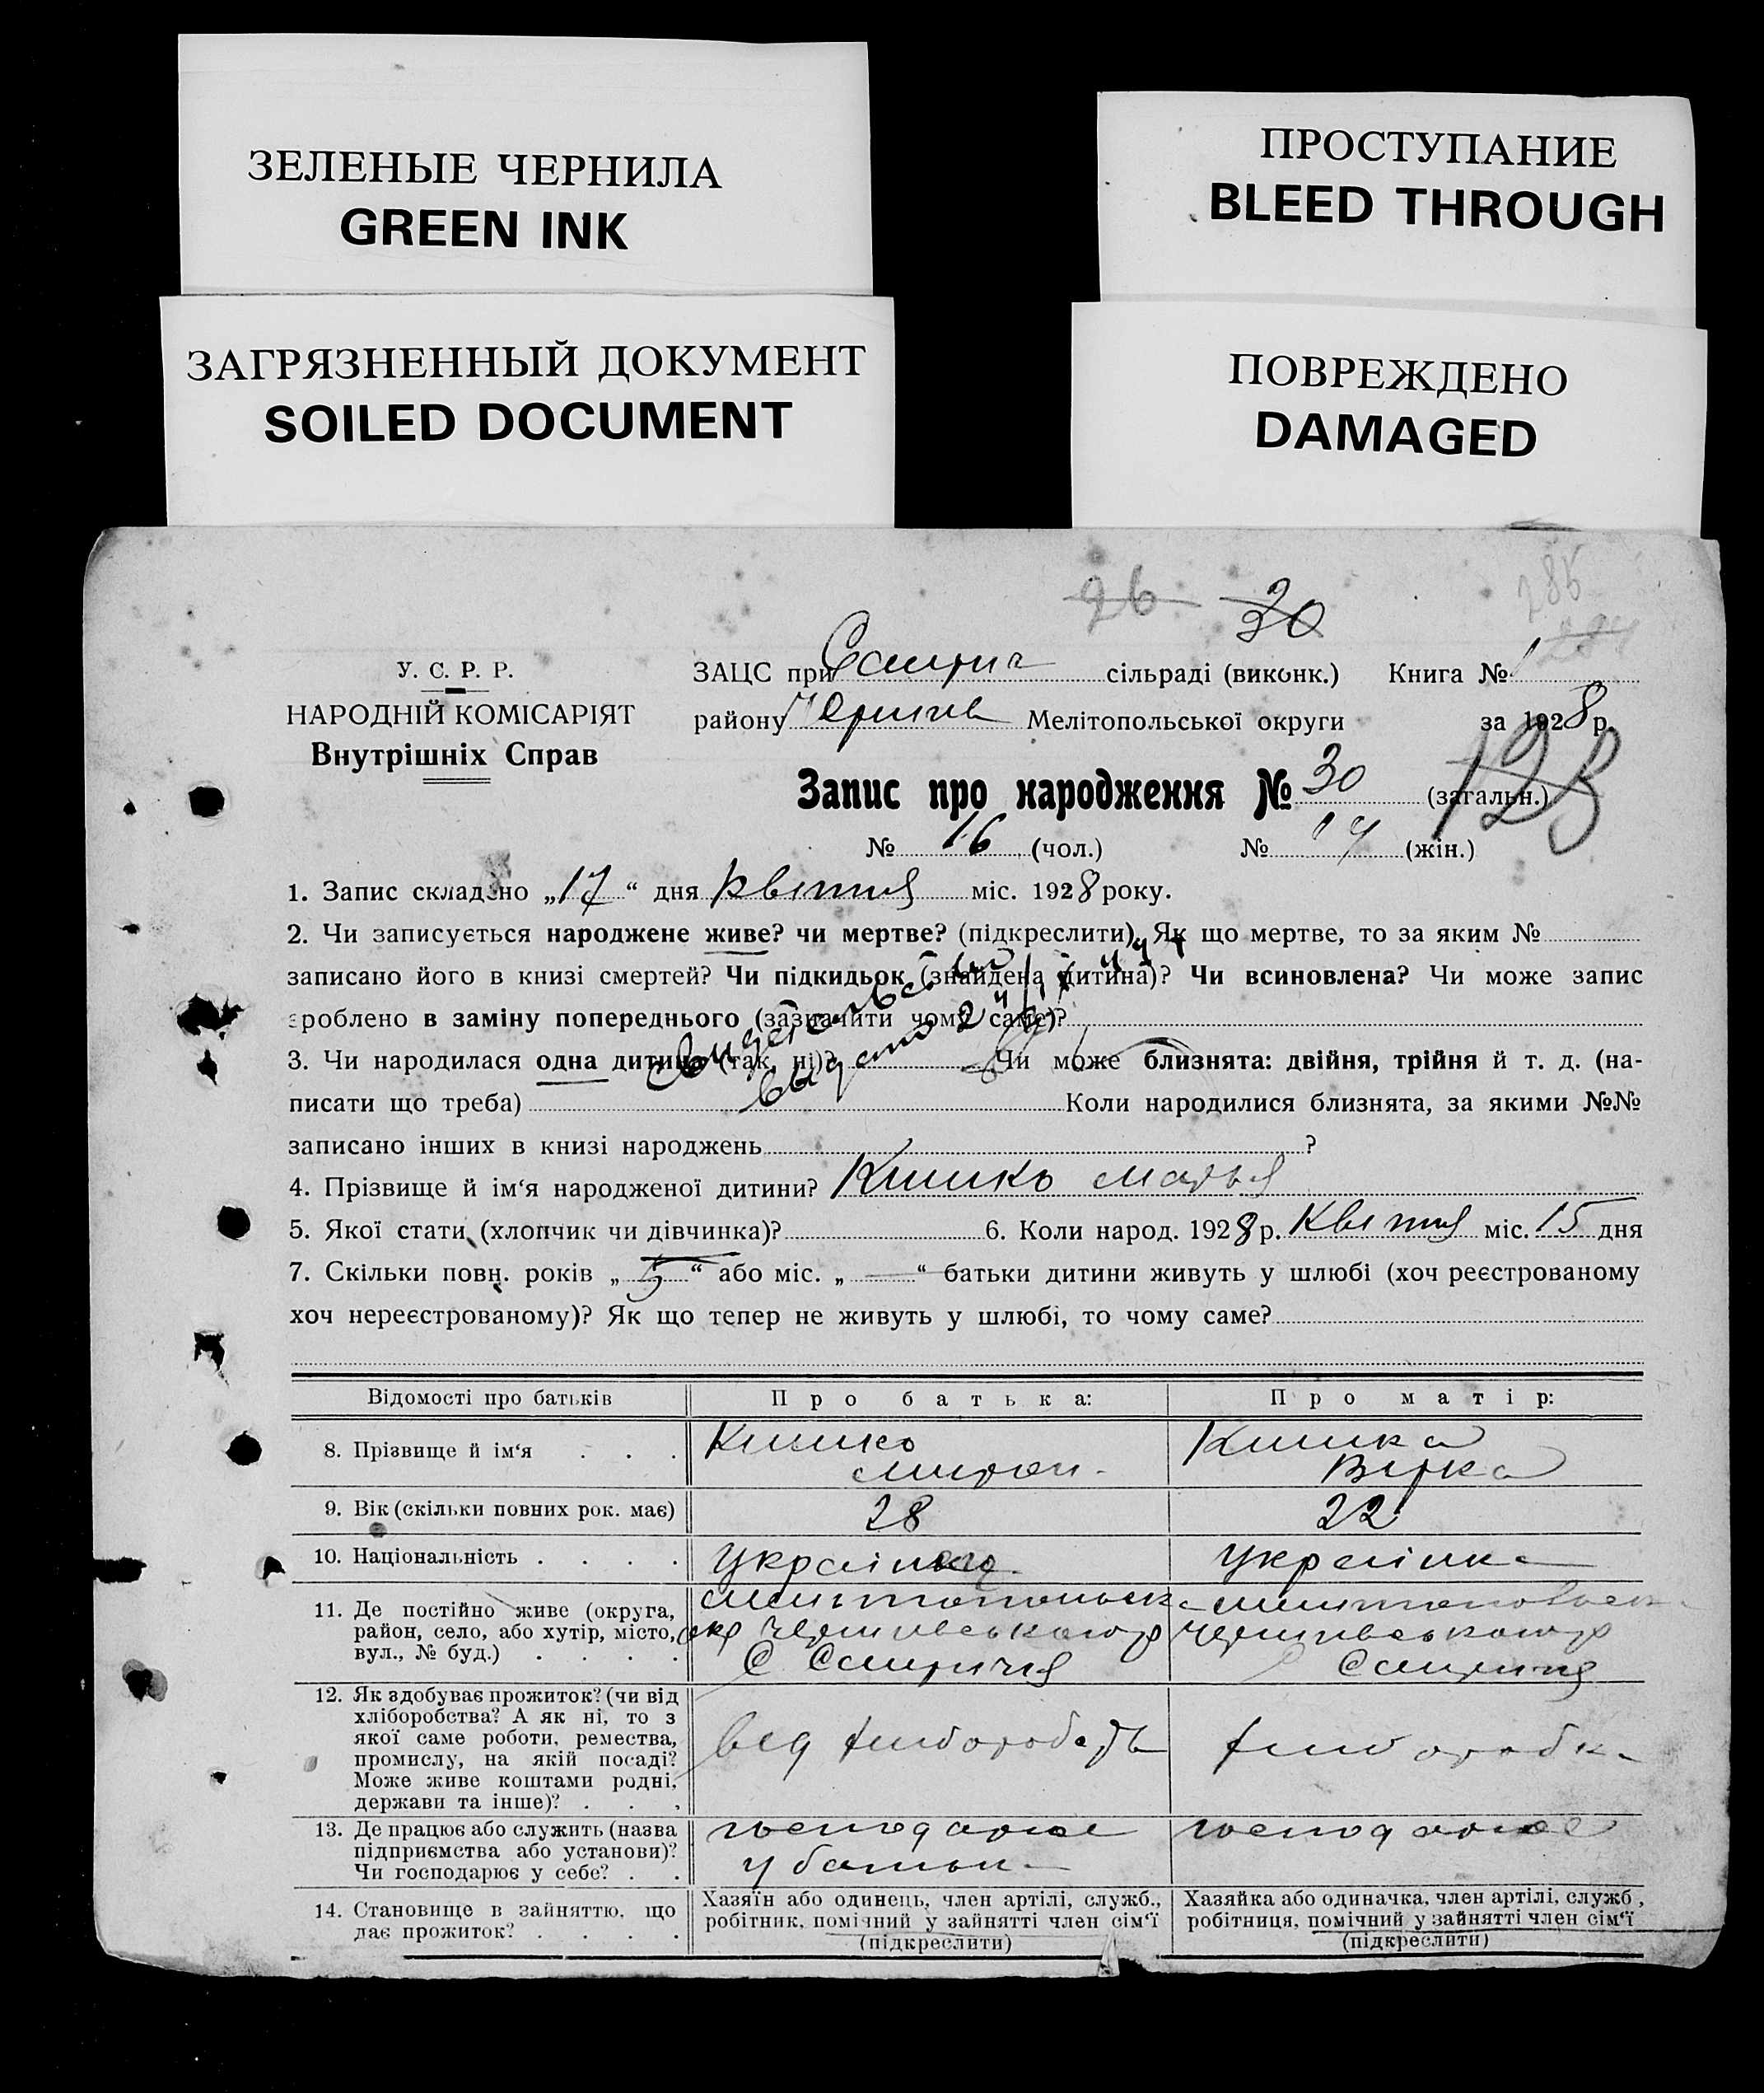 ЗЕЛЕНЫЕ ЧЕРНИЛА
GREEN INK
ПРОСТУПАНИЕ
BLEED THROUGH
ЗАГРЯЗНЕННЫЙ ДОКУМЕНТ
SOILED DOCUMENT
ПОВРЕЖДЕНО
DAMAGED
26 30 285
284
У. С. Р. Р.
НАРОДНІЙ КОМІСАРІЯТ
Внутрішніх Справ
ЗАЦС при сільраді (виконк.) Книга № 1
району Мелітопольської округи за 1928 р.
Запис про народження № 30 (загальн.)
123
№ 16 (чол.) № 14 (жін.)
1. Запис складено „17“ дня квітня міс. 1928 року.
2. Чи записується народжене живе? чи мертве? (підкреслити). Як що мертве, то за яким №
записано його в книзі смертей? Чи підкидьок (знайдена дитина)? Чи всиновлена? Чи може запис
зроблено в заміну попереднього (зазначити чому саме)?
3. Чи народилася одна дитина (так, ні)? Чи може близнята: двійня, трійня й т. д. (на-
писати що треба) Коли народилися близнята, за якими №№
записано інших в книзі народжень ?
4. Прізвище й ім‘я народженої дитини? Кишко Марья
5. Якої стати (хлопчик чи дівчинка)? 6. Коли народ. 1928 р. Квітня міс. 15 дня
7. Скільки повн. років „5“ або міс. „—“ батьки дитини живуть у шлюбі (хоч реєстрованому
хоч нереєстрованому)? Як що тепер не живуть у шлюбі, то чому саме?
Відомості про батьків Про батька: Про матір:
8. Прізвище й ім‘я Кишко Мирон Кишка Вірка
9. Вік (скільки повних рок. має) 28 22
10. Національність Українец Українка
11. Де постійно живе (округа,
район, село, або хутір, місто,
вул., № буд.)
12. Як здобуває прожиток? (чи від
хліборобства? А як ні, то з
якої саме роботи, ремества,
промислу, на якій посаді?
Може живе коштами родні,
держави та інше)? від хлібороб хліборобка
13. Де працює або служить (назва
підприємства або установи)?
Чи господарює у себе? господарює у батьки господарює
14. Становище в зайняттю, що
дає прожиток?
Хазяїн або одинець, член артілі, служб.,
робітник, помічний у зайнятті член сім‘ї
(підкреслити)
Хазяйка або одиначка, член артілі, служб,
робітниця, помічний у зайнятті член сім‘ї
(підкреслити)